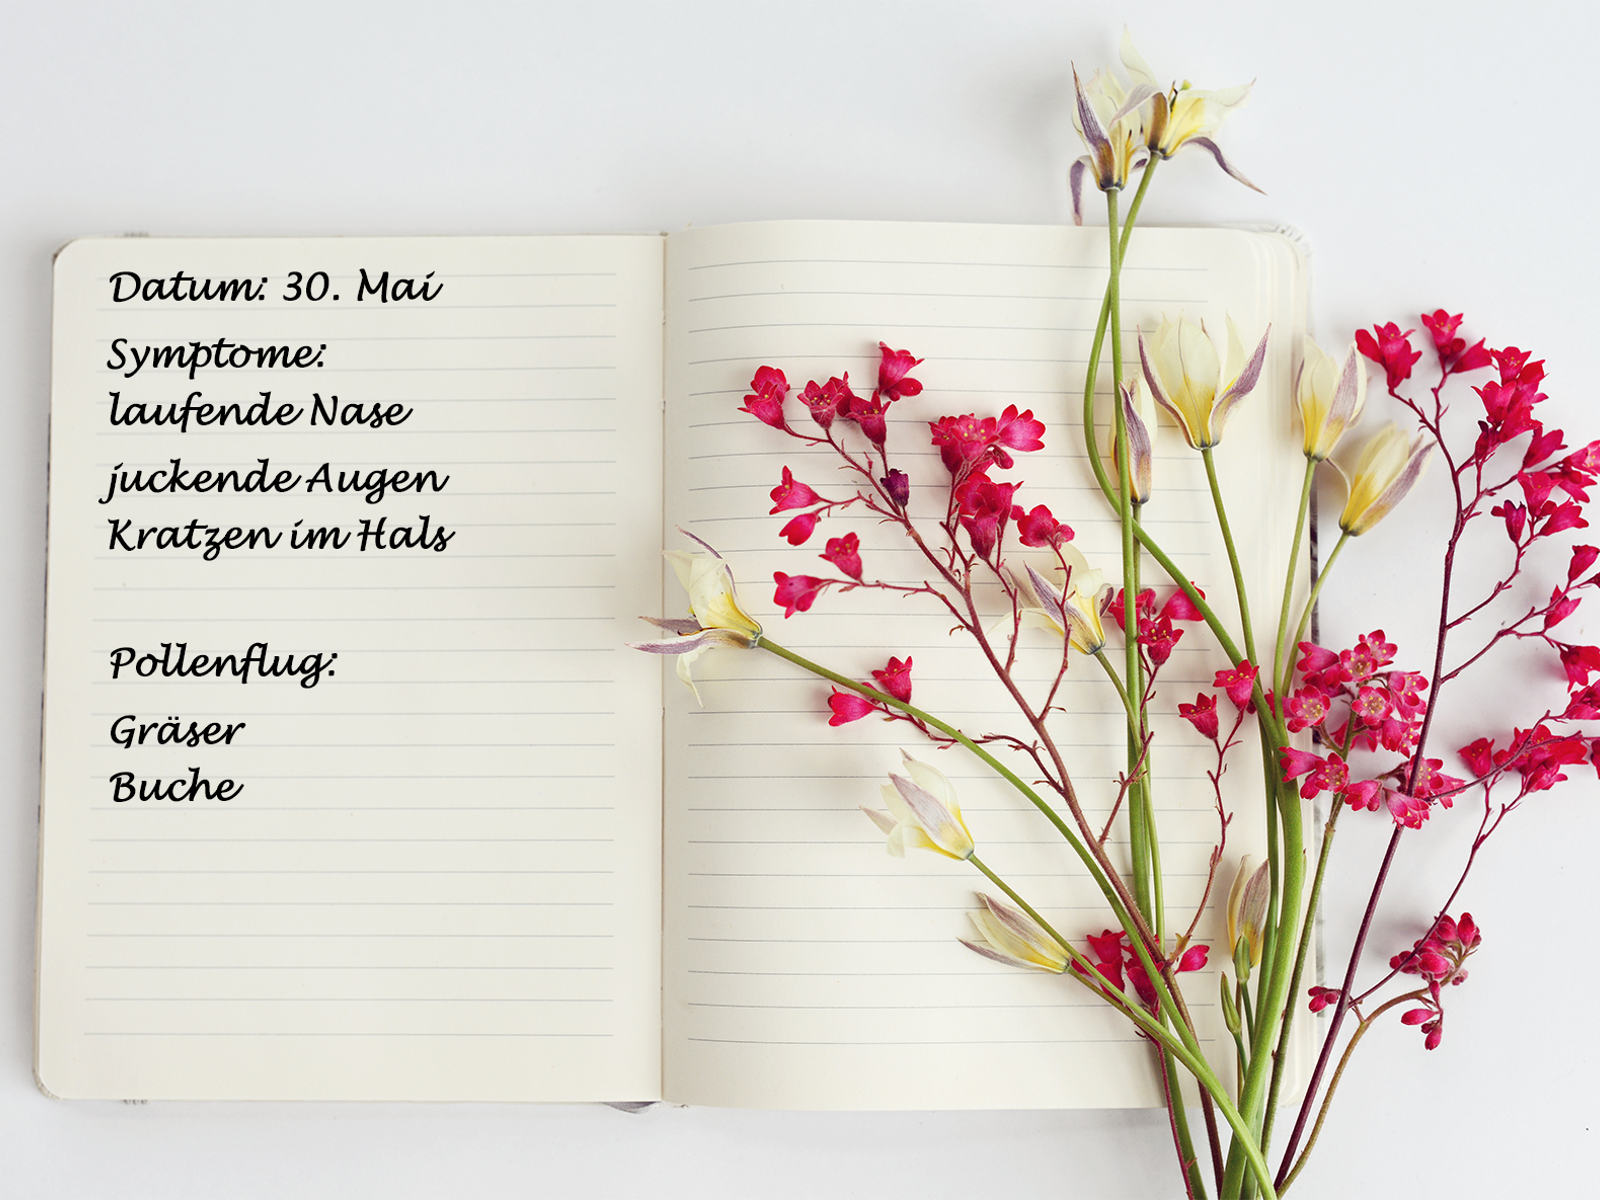 Datum: 30. Mai
Symptome:
laufende Nase
juckende Augen
Kratzen im Hals
Pollenflug:
Gräser
Buche